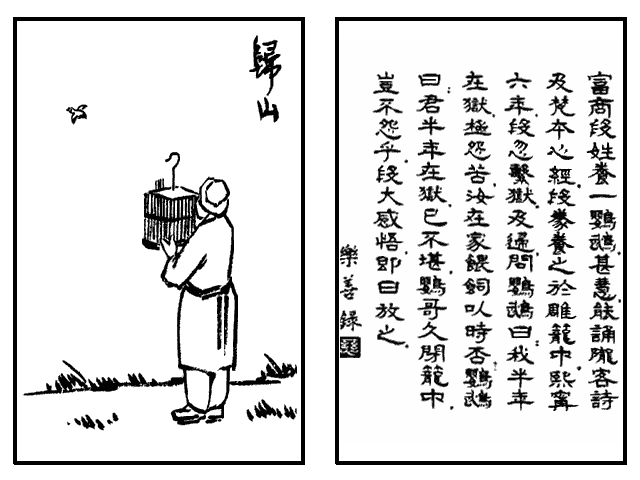 歸山
富商段姓養一鸚鵡甚慧能誦隴客詩
及梵本心經段豢養之於雕籠中熙甯
六年段忽繫獄及還問鸚鵡曰我半年
在獄極怨苦汝在家餵飼以時否鸚鵡
曰君半年在獄已不堪鸚哥久閉籠中
豈不怨乎段大感悟即日放之
樂善錄